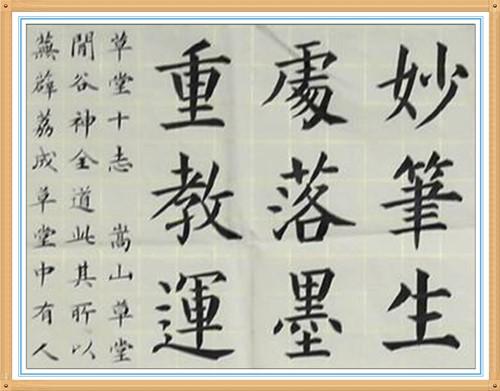 妙筆生
處落墨
重教運
草堂十志 嵩山草堂
閒谷神全道此其所以
蕪薜荔成草堂中有人